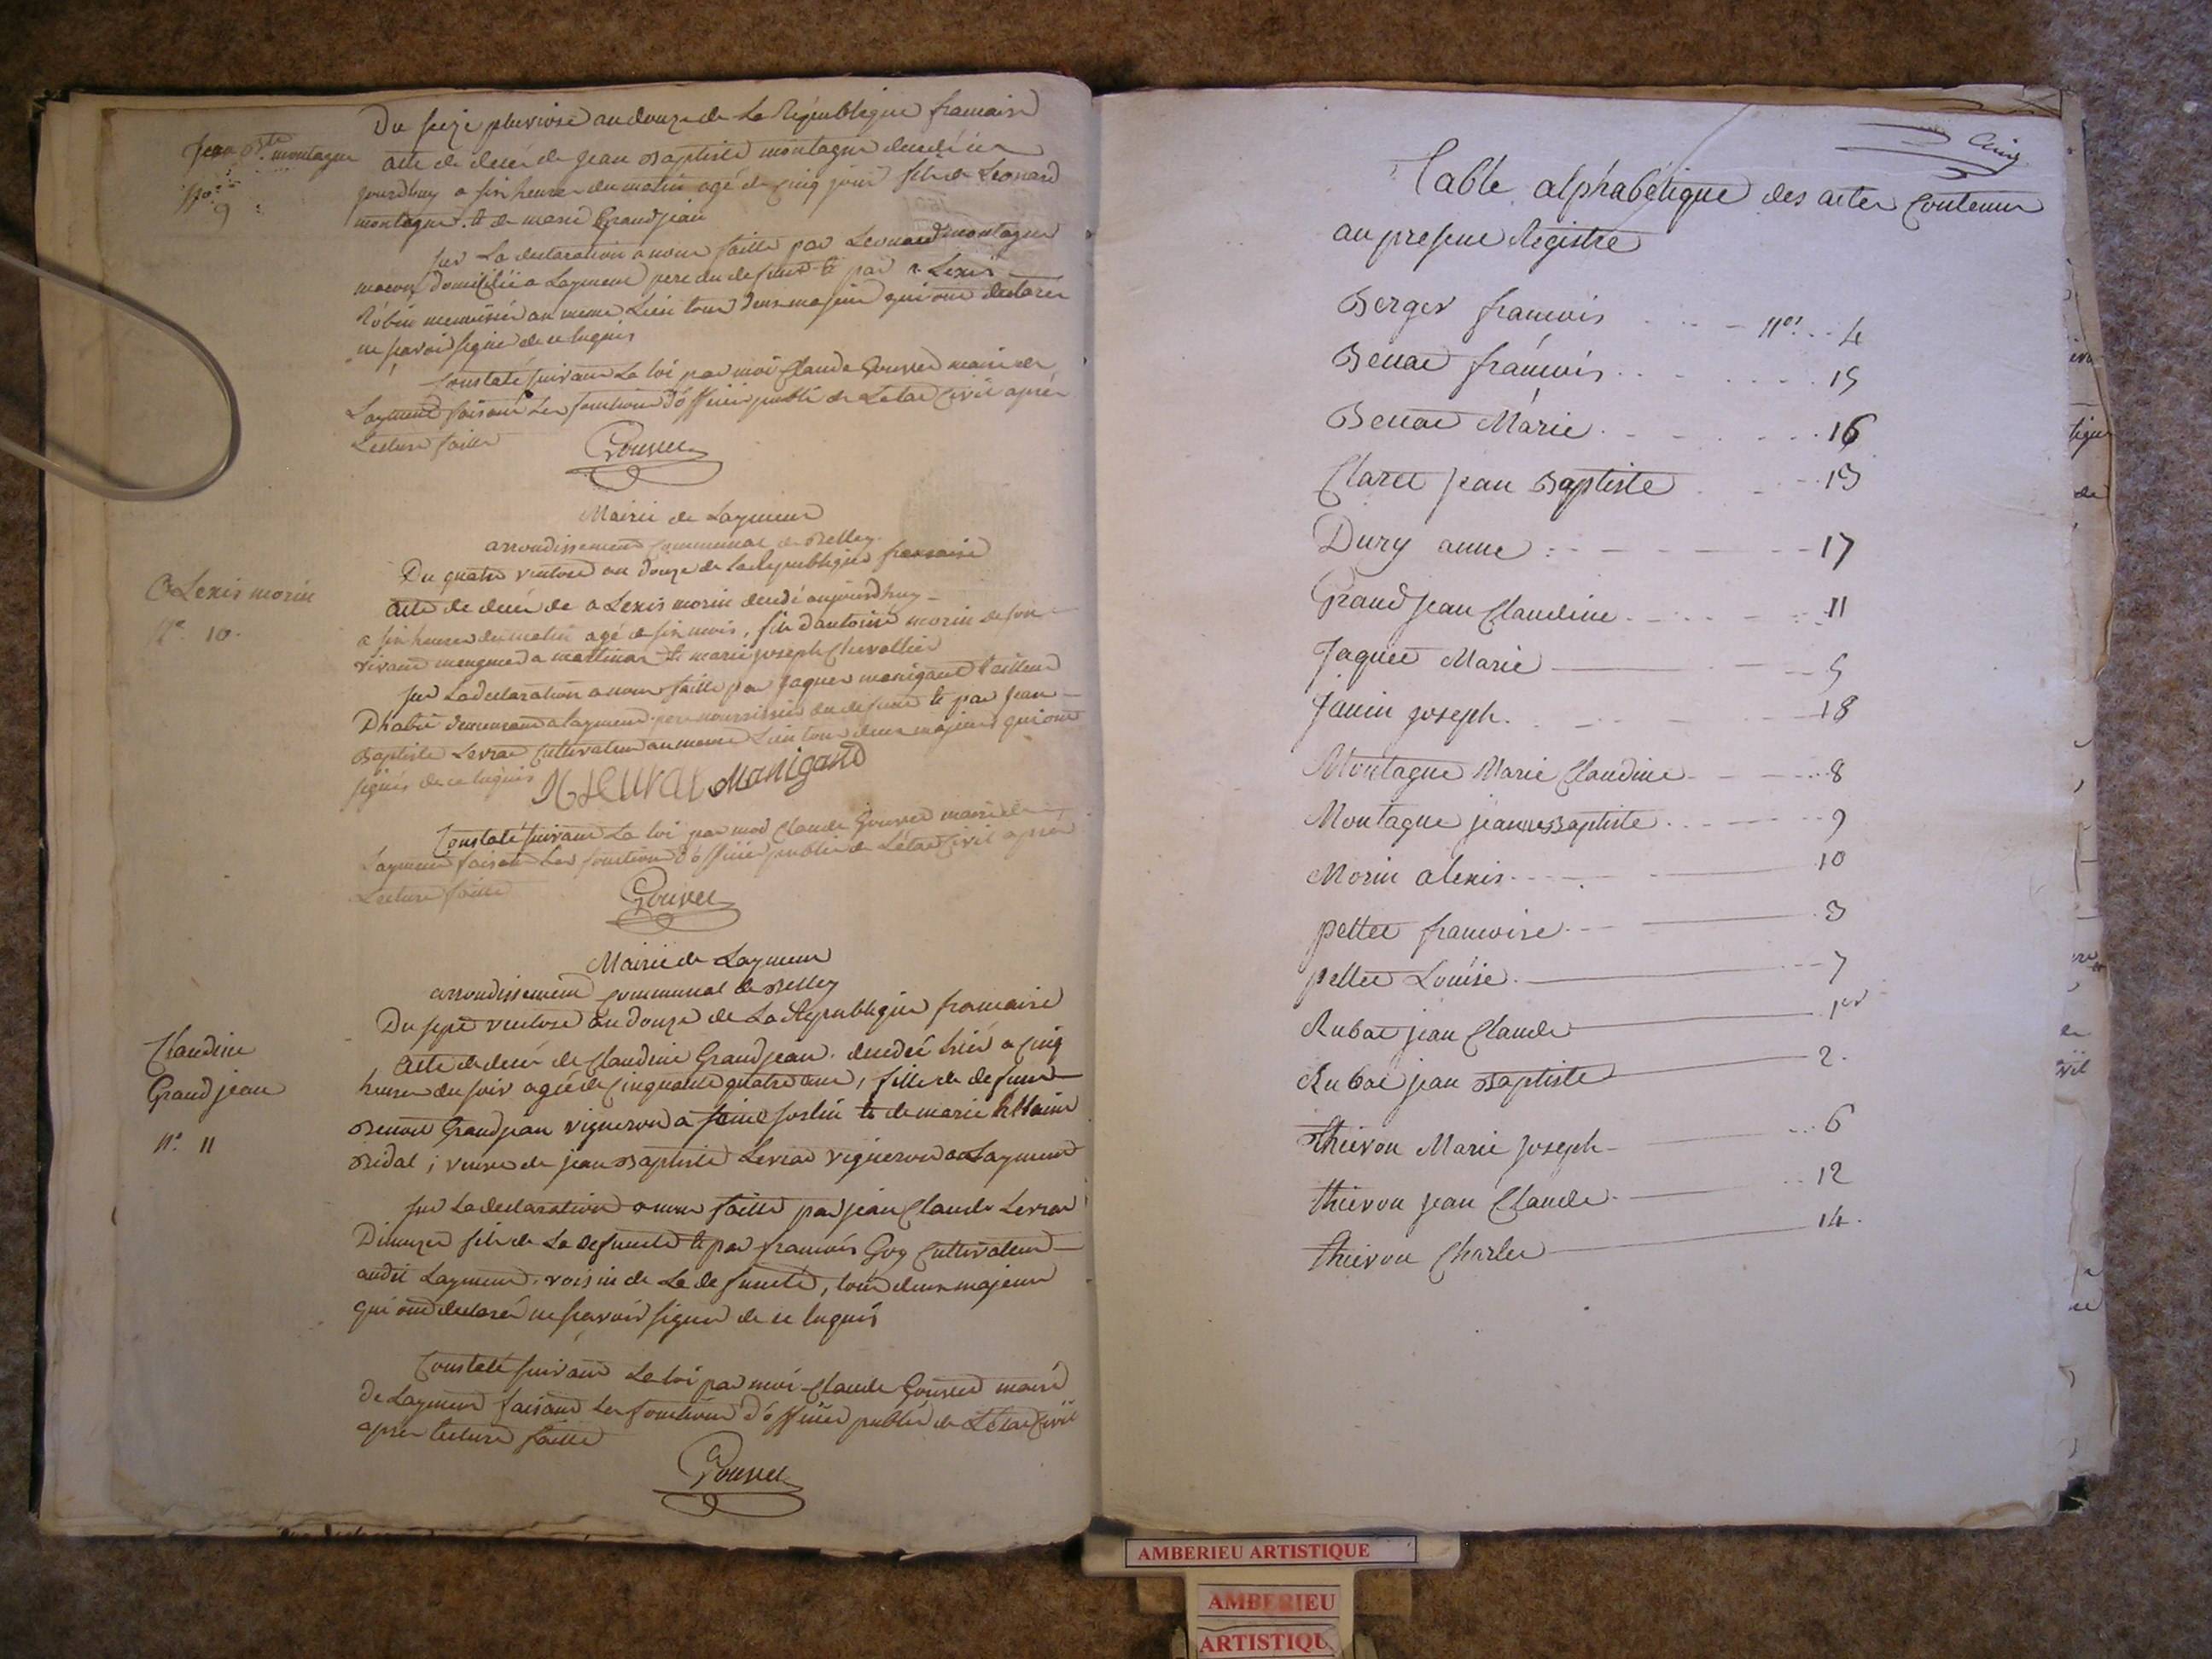 Jean Bte montagne
No. 9
Du seize pluviose an douze de La République francaise
acte de décés de jean Baptiste montagne decedé ier
jourdhuy a six heures du matin agé de cinq jours fils de Leonard
montagne et de marie Grandjean
sur La declaration a nous faitte par Leonard montagne
macon domicilié a Laymend pere du defunt et par a Lexis
Robin menuisier au meme Lieu tous deux majeurs qui ont declarés
ne scavoir signer de ce luquis
Constaté suivant La loi par moi Claude Gouvet maire de
Laymend faisant Les fonctions d'officier public de Letat Civil aprés
Lecture faitte
Gouvet
Mairie de Laymend
arrondissement Communal de Belley
a Lexis morin
No. 10.
Du quatre ventose an douze de la République francaise
acte de decés de a Lexis morin decedé aujourdhuy
a six heures du matin agé de six mois, fils d'antoine morin de son
vivant a martinas et marie joseph Chevallier
sur La declaration a nous faitte par jaques manigand tailleur
Dhabit demeurant a Laymend pere nourrissier du defunt et par jean
Baptiste Levrat Cultivateur au meme Lieu tous deux majeurs qui ont
signés de ce luquis
Levrat Manigand
Constaté suivant La loi par moi Claude Gouvet maire de
Laymend faisant Les fonctions d'officier public de Létat Civil aprés
Lecture faitte
Gouvet
Mairie de Laymend
arrondissement Communal de Belley
Claudine
Grandjean
No. 11
Du sept ventose an douze de La République francaise
acte de decés de Claudine Grandjean decedée hiér a cinq
heures du soir agée de cinquante quatre ans, fille de defunt
Benoit Grandjean vigneron a sorlin et de marie
Bidal; veuve de jean Baptiste Levrat vigneron a Laymend
sur La declaration a nous faitte par jean Claude Levrat
fils de La defuncte et par francois Goy Cultivateur
audit Laymend, voisin de La defuncte, tous deux majeurs
qui ont declarés ne scavoir signer de ce luquis
Constaté suivant La loi par moi Claude Gouvet maire
de Laymend faisant Les fonctions d'officier public de Létat Civil
aprés Lecture faitte
Gouvet
Cinq
Table alphabétique des actes Contenus
au present Registre
Berger francois nos. 4
Benat francois 15
Benat Marie 16
Claret jean Baptiste 13
Dury anne 17
Grandjean Claudine 11
Jaquet Marie 5
Janin joseph 18
Montagne Marie Claudine 8
Montagne jean Baptiste 9
Morin alexis 10
pellet francoise 3
pellet Louise 7
Rubat jean Claude 1er
Rubat jean Baptiste 2.
thievon Marie joseph 6
thievon jean Claude 12
thievon Charles 14.
AMBERIEU ARTISTIQUE
AMBERIEU
ARTISTIQU